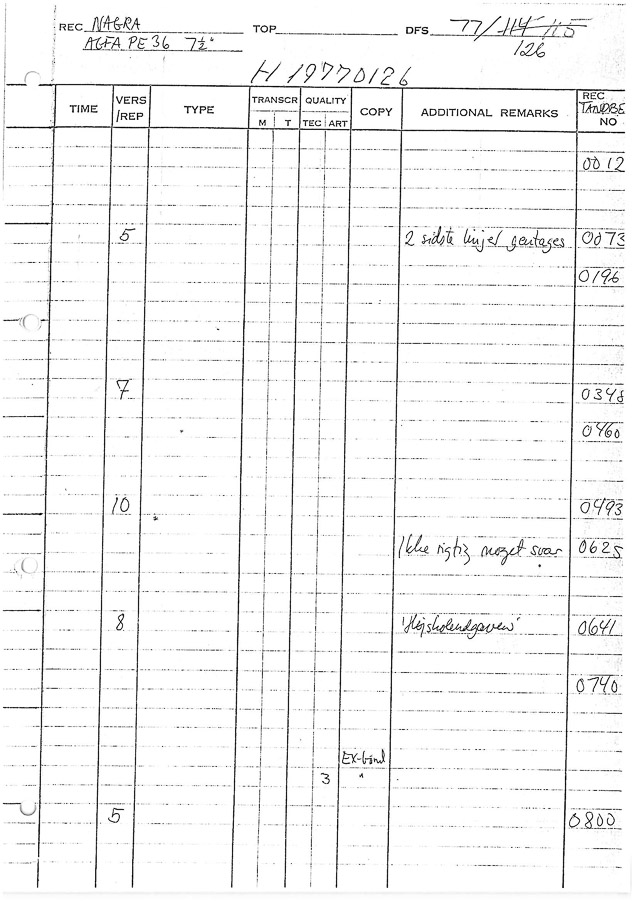 REC NAGRA TOP DFS 77/114 115
AGFA PE 36 7½" 126
H 19770126
TIME VERS /REP TYPE TRANSCR QUALITY COPY ADDITIONAL REMARKS REC TANDBE NO
M T TEC ART
0012
5 2 sidste linjer gentages 0073
0196
7 0348
0460
10 0493
Ikke rigtig noget svar 0625
8 0641
0740
Ex-bånd
3 "
5 0800